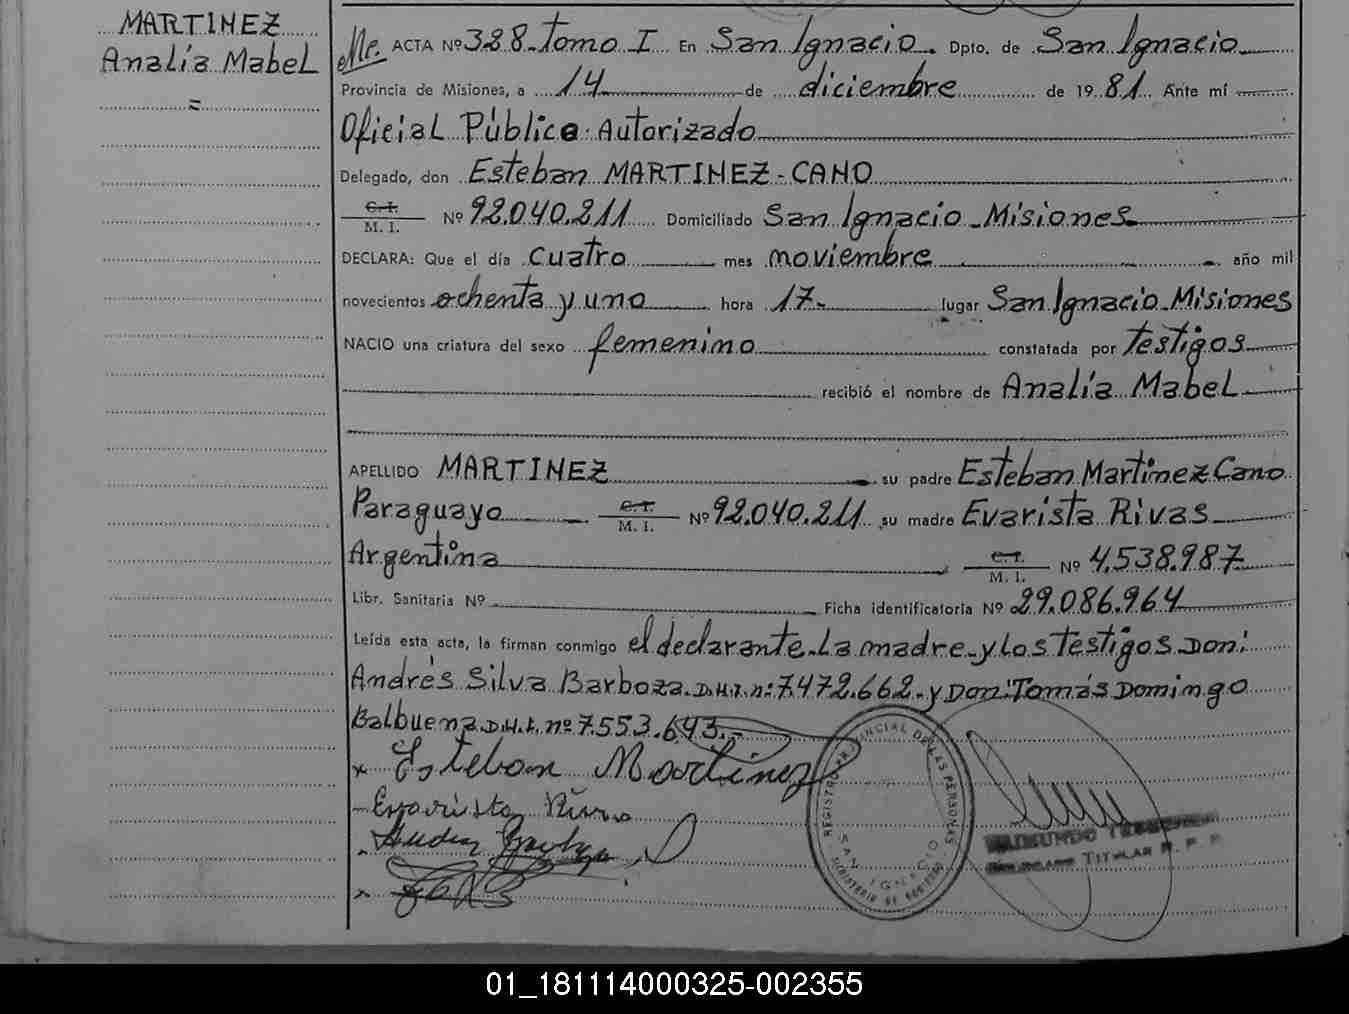 MARTINEZ
Analía Mabel
=
ACTA Nº 328-Tomo I En San Ignacio. Dpto. de San Ignacio
Provincia de Misiones, a 14 de diciembre de 1981 Ante mí
Oficial Público Autorizado
Delegado, don Esteban MARTINEZ-CANO
C.I. M. I. Nº 92.040.211 Domiciliado San Ignacio-Misiones
DECLARA: Que el día cuatro mes noviembre año mil
novecientos ochenta y uno hora 17- lugar San Ignacio-Misiones
NACIO una criatura del sexo femenino constatada por Testigos
recibió el nombre de Analía Mabel
APELLIDO MARTINEZ su padre Esteban Martinez Cano
Paraguayo C.I. M. I. Nº 92.040.211 su madre Evarista Rivas
Argentina C.I. M. I. Nº 4.538.987
Libr. Sanitaria Nº Ficha identificatoria Nº 29.086.964
Leída esta acta, la firman conmigo el declarante-La madre-y Los Testigos Don:
Andrés Silva Barboza D.N.I. nº: 7.472.662-y Don: Tomás Domingo
Balbuena D.N.I. nº 7.553.643.-
Esteban Martinez
Evarista Rivas
REGISTRO PROVINCIAL DE LAS PERSONAS
SAN IGNACIO
MINISTERIO DE GOBIERNO
RAIMUNDO
DELEGADO TITULAR R. P. P.
01_181114000325-002355